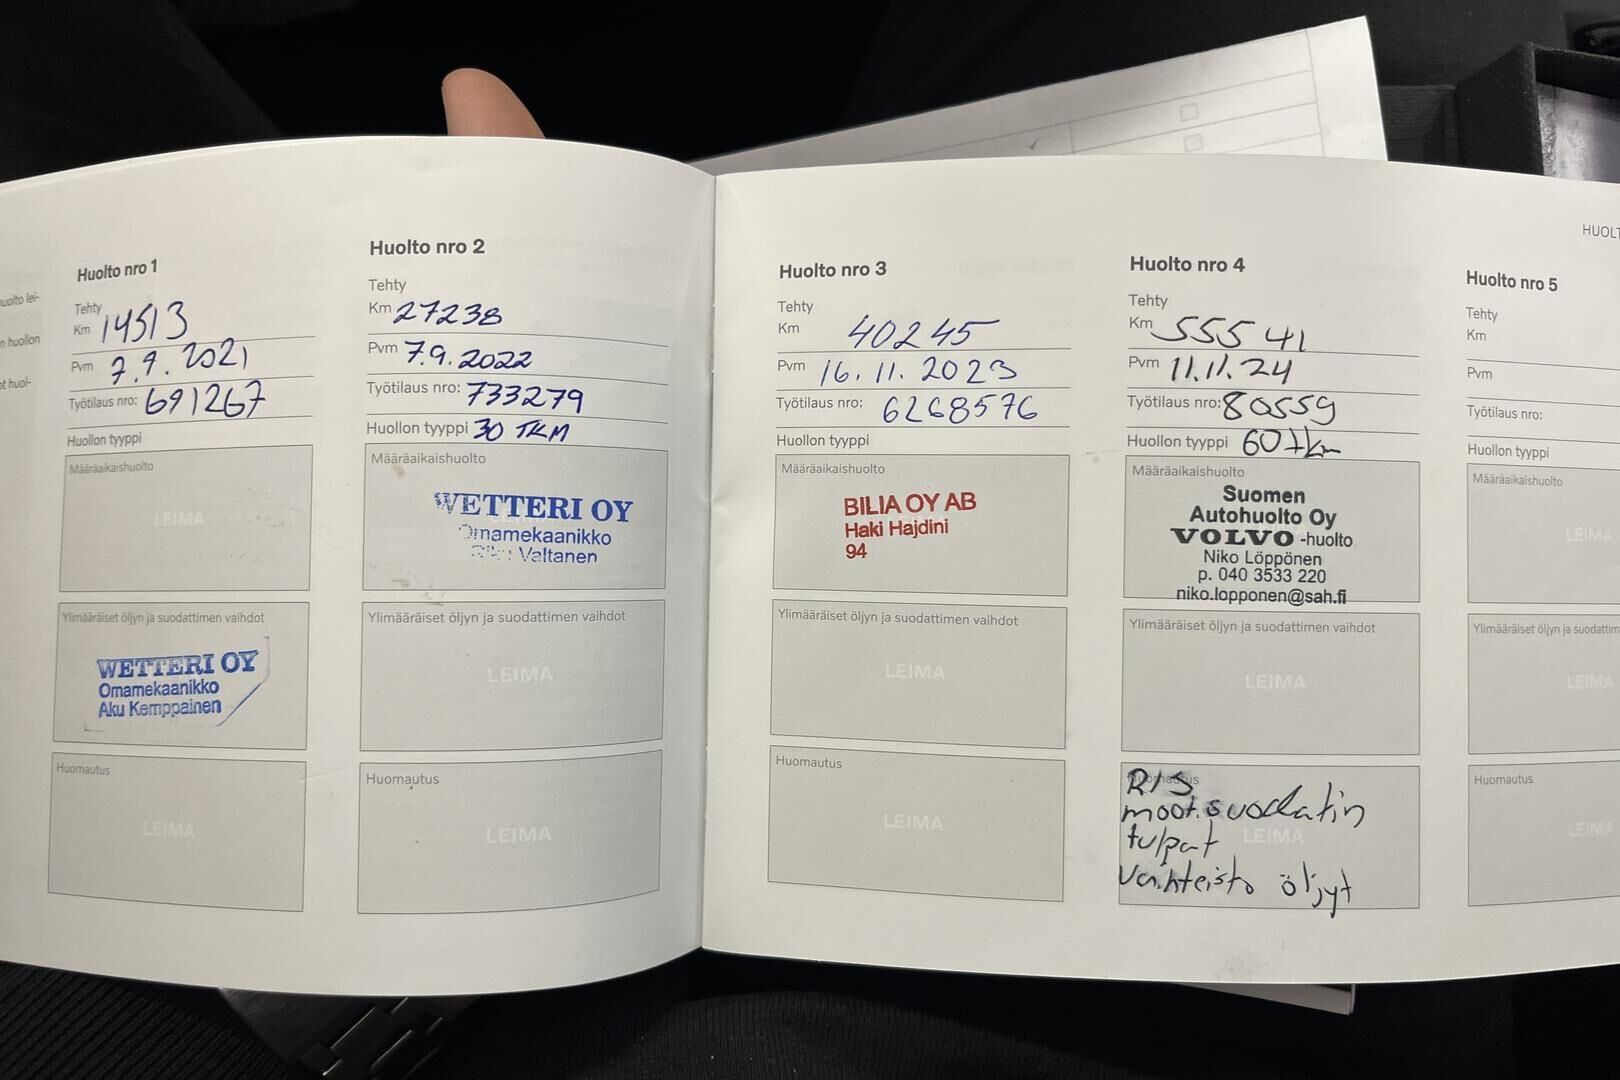 HUOLT
uolto lei-
n huollon
ot huol-
Huolto nro 1
Tehty
Km 14513
Pvm 7.9.2021
Työtilaus nro: 691267
Huollon tyyppi
Määräaikaishuolto
LEIMA
Ylimääräiset öljyn ja suodattimen vaihdot
WETTERI OY
Omamekaanikko
Aku Kemppainen
Huomautus
LEIMA
Huolto nro 2
Tehty
Km 27238
Pvm 7.9.2022
Työtilaus nro: 733279
Huollon tyyppi 30 TKM
Määräaikaishuolto
WETTERI OY
Omamekaanikko
Valtanen
Ylimääräiset öljyn ja suodattimen vaihdot
LEIMA
Huomautus
LEIMA
Huolto nro 3
Tehty
Km 40245
Pvm 16.11.2023
Työtilaus nro: 6268576
Huollon tyyppi
Määräaikaishuolto
BILIA OY AB
Haki Hajdini
94
Ylimääräiset öljyn ja suodattimen vaihdot
LEIMA
Huomautus
LEIMA
Huolto nro 4
Tehty
Km 55541
Pvm 11.11.24
Työtilaus nro: 80559
Huollon tyyppi 60 tkm
Määräaikaishuolto
Suomen
Autohuolto Oy
VOLVO -huolto
Niko Löppönen
p. 040 3533 220
niko.lopponen@sah.fi
Ylimääräiset öljyn ja suodattimen vaihdot
LEIMA
Huomautus
moot.suodatin
tulpat
LEIMA
Vaihteisto öljyt
Huolto nro 5
Tehty
Km
Pvm
Työtilaus nro:
Huollon tyyppi
Määräaikaishuolto
LEIMA
Ylimääräiset öljyn ja suodattim
LEIMA
Huomautus
LEIMA